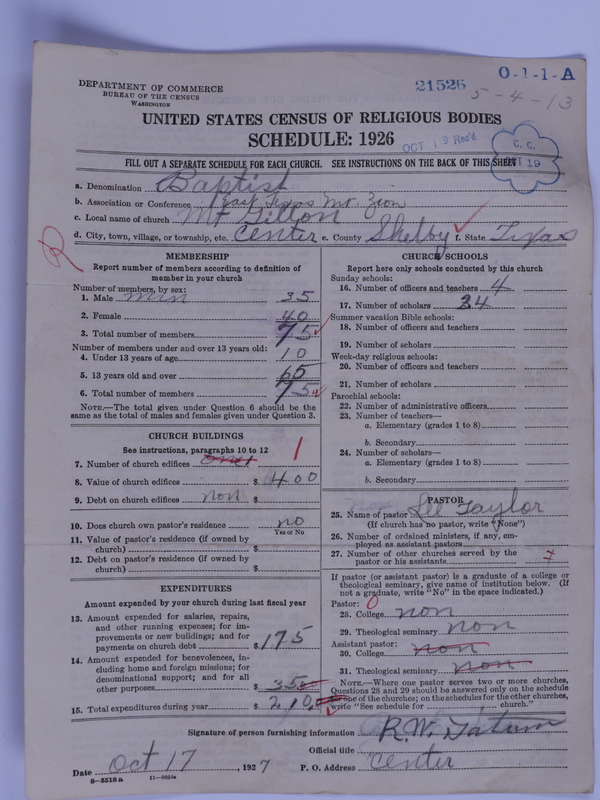 DEPARTMENT OF COMMERCE
BUREAU OF THE CENSUS
WASHINGTON
21526
O-1-1-A
5-4-13
UNITED STATES CENSUS OF RELIGIOUS BODIES
SCHEDULE: 1926
OCT 19 Rec'd
C. C.
OCT 19
FILL OUT A SEPARATE SCHEDULE FOR EACH CHURCH. SEE INSTRUCTIONS ON THE BACK OF THIS SHEET
a. Denomination Baptist
b. Association or Conference East Texas Mt. Zion
c. Local name of church Mt Gillion
d. City, town, village, or township, etc. Center e. County Shelby f. State Texas
MEMBERSHIP
Report number of members according to definition of
member in your church
Number of members, by sex:
1. Male min 35
2. Female 40
3. Total number of members 75
Number of members under and over 13 years old:
4. Under 13 years of age 10
5. 13 years old and over 65
6. Total number of members 75
NOTE.—The total given under Question 6 should be the
same as the total of males and females given under Question 3.
CHURCH BUILDINGS
See instructions, paragraphs 10 to 12
7. Number of church edifices one 1
8. Value of church edifices $ 400
9. Debt on church edifices non $
10. Does church own pastor's residence no
Yes or No
11. Value of pastor's residence (if owned by
church) $
12. Debt on pastor's residence (if owned by
church) $
EXPENDITURES
Amount expended by your church during last fiscal year
13. Amount expended for salaries, repairs,
and other running expenses; for im-
provements or new buildings; and for
payments on church debt $ 175
14. Amount expended for benevolences, in-
cluding home and foreign missions; for
denominational support; and for all
other purposes $ 35
15. Total expenditures during year $ 210
CHURCH SCHOOLS
Report here only schools conducted by this church
Sunday schools:
16. Number of officers and teachers 4
17. Number of scholars 34
Summer vacation Bible schools:
18. Number of officers and teachers
19. Number of scholars
Week-day religious schools:
20. Number of officers and teachers
21. Number of scholars
Parochial schools:
22. Number of administrative officers
23. Number of teachers—
a. Elementary (grades 1 to 8)
b. Secondary
24. Number of scholars—
a. Elementary (grades 1 to 8)
b. Secondary
PASTOR
25. Name of pastor Lee Taylor
(If church has no pastor, write "None")
26. Number of ordained ministers, if any, em-
ployed as assistant pastors
27. Number of other churches served by the
pastor or his assistants
If pastor (or assistant pastor) is a graduate of a college or
theological seminary, give name of institution below. (If
not a graduate, write "No" in the space indicated.)
Pastor: 0
28. College non
29. Theological seminary non
Assistant pastor:
30. College non
31. Theological seminary non
NOTE.—Where one pastor serves two or more churches,
Questions 28 and 29 should be answered only on the schedule
for one of the churches; on the schedules for the other churches,
write "See schedule for church."
Signature of person furnishing information R.W. Tatum
Official title
Date Oct 17, 1927 P. O. Address Center
8-5518a